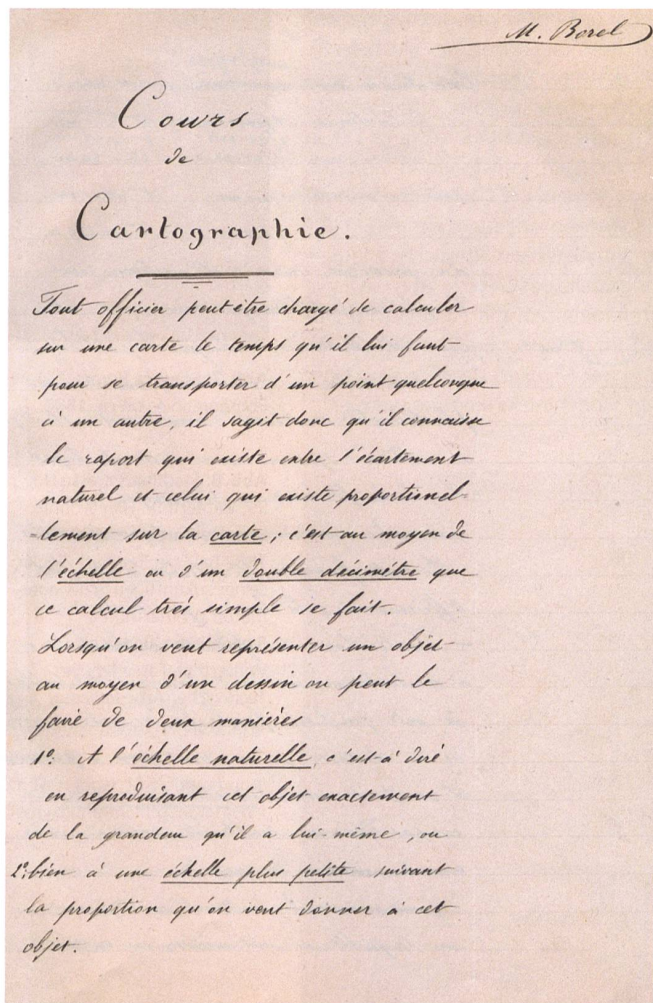 M. Borel
Cours
de
Cartographie.
Tout officier peut être chargé de calculer
sur une carte le temps qu'il lui faut
pour se transporter d'un point quelconque
à un autre, il sagit donc qu'il connaisse
le raport qui existe entre l'écartement
naturel et celui qui existe proportionel=
=lement sur la carte ; c'est au moyen de
l'échelle ou d'un double décimètre que
ce calcul trés simple se fait.
Lorsqu'on veut représenter un objet
au moyen d'un dessin on peut le
faire de deux manières
1º: A l'échelle naturelle, c'est-à diré
en reproduisant cet objet exactement
de la grandeur qu'il a lui-même, ou
2º: bien à une échelle plus petite suivant
la proportion qu'on veut donner à cet
objet.